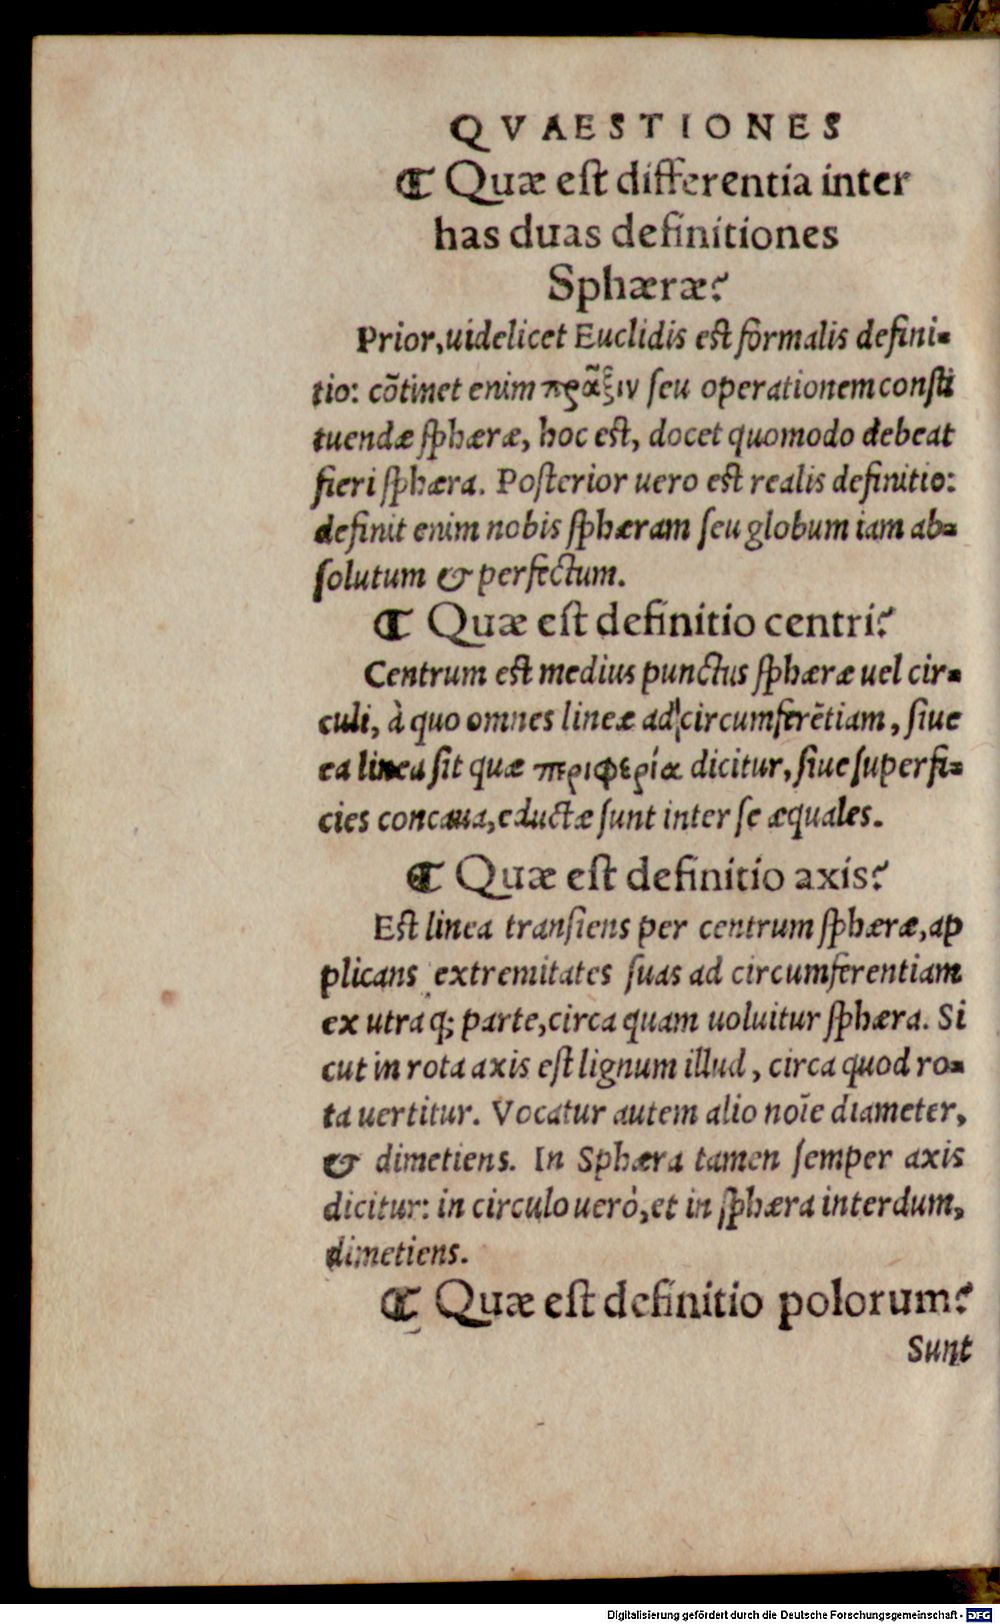 QVAESTIONES
¶ Quæ eſt differentia inter
has duas definitiones
Sphæræ?
Prior, uidelicet Euclidis eſt formalis defini-
tio: cõtinet enim πρᾶξιν ſeu operationem conſti
tuendæ ſphæræ, hoc eſt, docet quomodo debeat
fieri ſphæra. Poſterior uero eſt realis definitio:
definit enim nobis ſphæram ſeu globum iam ab-
ſolutum & perfectum.
¶ Quæ eſt definitio centri?
Centrum eſt medius punctus ſphæræ uel cir-
culi, à quo omnes lineæ ad circumferẽtiam, ſiue
ea linea ſit quæ περιφερία dicitur, ſiue ſuperfi-
cies concaua, eductæ ſunt inter ſe æquales.
¶ Quæ eſt definitio axis?
Eſt linea tranſiens per centrum ſphæræ, ap
plicans extremitates ſuas ad circumferentiam
ex utraq; parte, circa quam uoluitur ſphæra. Si
cut in rota axis eſt lignum illud, circa quod ro-
ta uertitur. Vocatur autem alio noīe diameter,
& dimetiens. In Sphæra tamen ſemper axis
dicitur: in circulo uerò, et in ſphæra interdum,
dimetiens.
¶ Quæ eſt definitio polorum?
Sunt
Digitalisierung gefördert durch die Deutsche Forschungsgemeinschaft - DFG